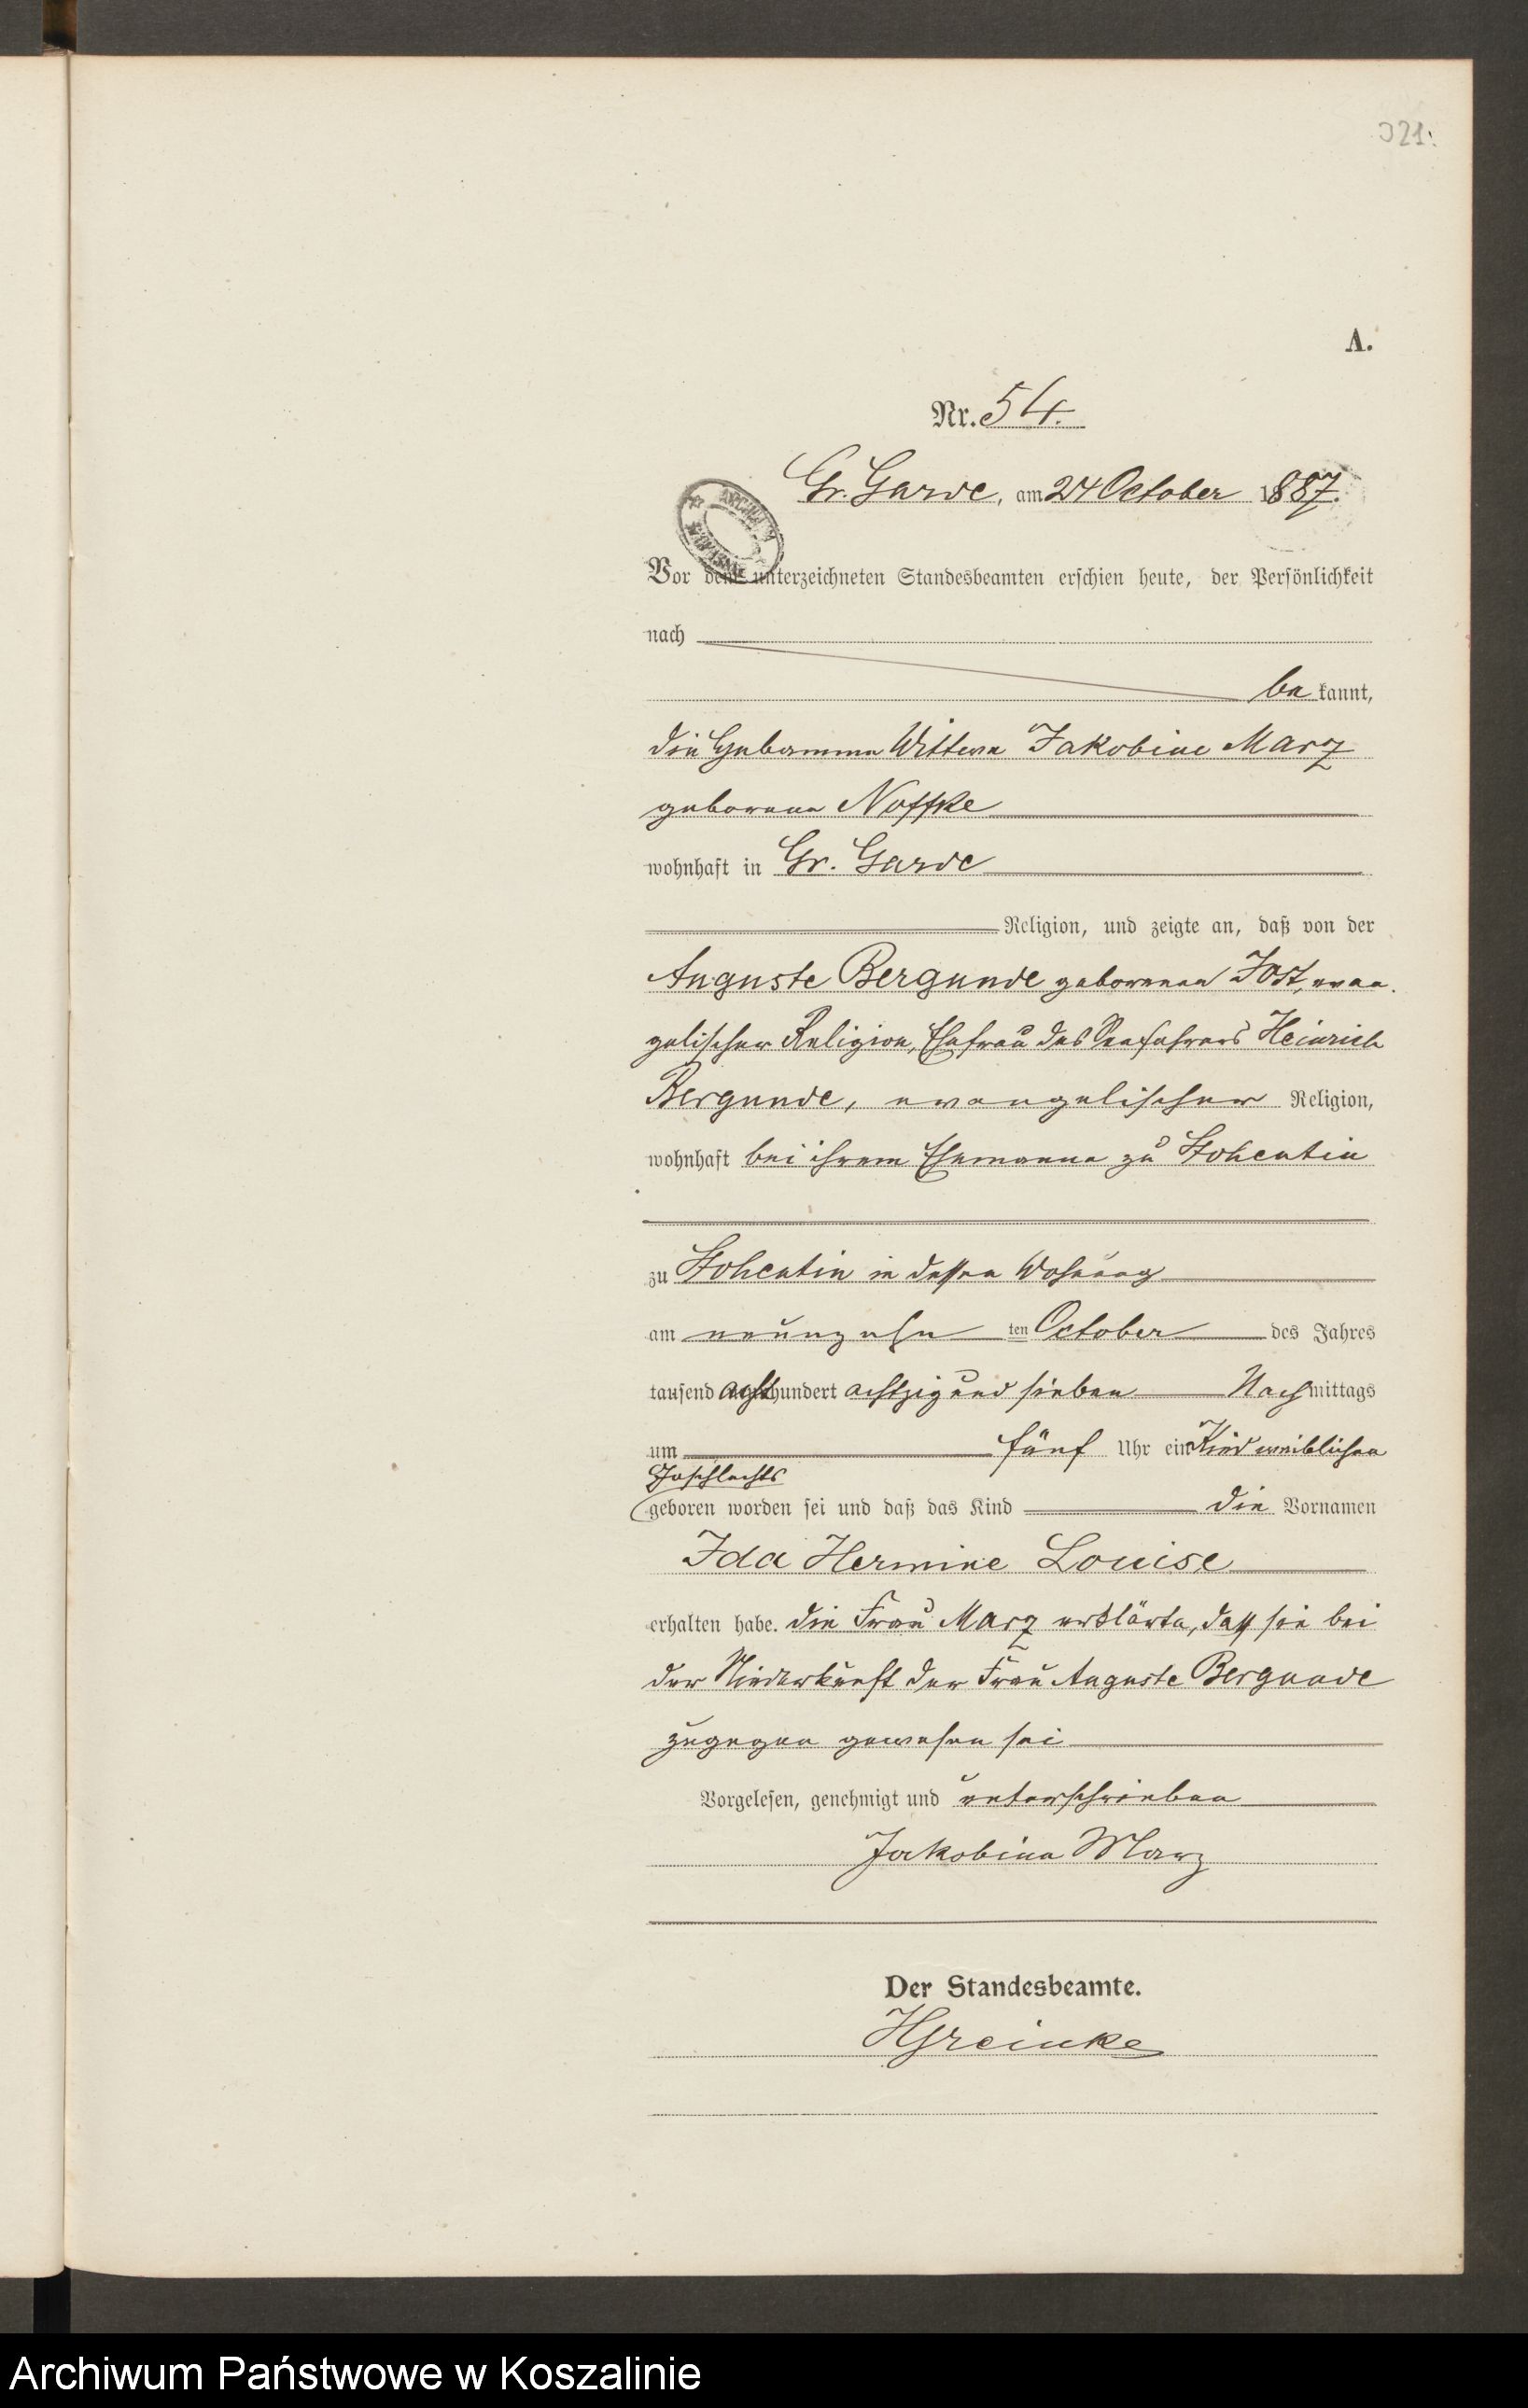 321.
A.
Nr. 54.
Gr. Garde, am 24 October 1887.
Vor dem unterzeichneten Standesbeamten erschien heute, der Persönlichkeit
nach
be kannt,
die Hebamme Wittwe Jakobine Marz
geborene Noffke
wohnhaft in Gr. Garde
Religion, und zeigte an, daß von der
Auguste Bergunde geborenen Jost, evan
gelischer Religion, Ehefrau des Seefahrers Heinrich
Bergunde, evangelischer Religion,
wohnhaft bei ihrem Ehemanne zu Stohentin
zu Stohentin in dessen Wohnung
am neunzehn ten October des Jahres
tausend acht hundert achtzig und sieben Nach mittags
um fünf Uhr ein Kind weiblichen
Geschlechts
geboren worden sei und daß das Kind die Vornamen
Ida Hermine Louise
erhalten habe. die Frau Marz erklärte, daß sie bei
der Niederkunft der Frau Auguste Bergunde
zugegen gewesen sei
Vorgelesen, genehmigt und unterschrieben
Jakobine Marz
Der Standesbeamte.
Archiwum Państwowe w Koszalinie